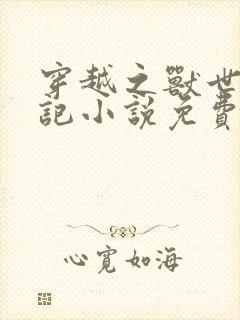 穿越之獸世
記小説免費
心寬如海